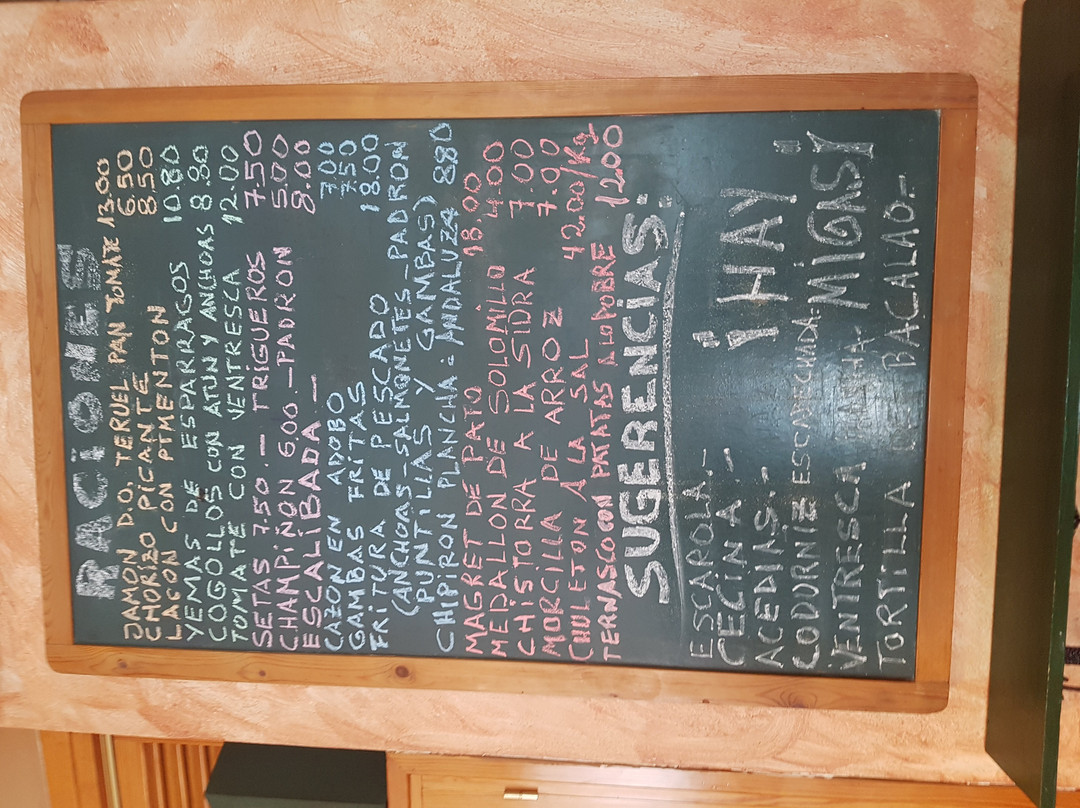 RACIONES
JAMON D.O. TERUEL PAN TOMATE 13.00
CHORIZO PICANTE 6.50
LACON CON PIMENTON 8.50
YEMAS DE ESPARRAGOS 10.80
COGOLLOS CON ATUN Y ANCHOAS 8.80
TOMATE CON VENTRESCA 12.00
SETAS 7.50.- TRIGUEROS 7.50
CHAMPIÑON 6.00.- PADRON 5.00
ESCALIBADA.- 8.00
CAZON EN ADOBO 7.00
GAMBAS FRITAS 7.50
FRITURA DE PESCADO 18.00
(ANCHOAS-SALMONETES-PADRON
PUNTILLAS Y GAMBAS)
CHIPIRON PLANCHA: ANDALUZA 8.80
MAGRET DE PATO 18.00
MEDALLON DE SOLOMILLO 4.00
CHISTORRA A LA SIDRA 7.00
MORCILLA DE ARROZ 7.90
CHULETON A LA SAL 42.00/Kg
TERNASCO CON PATATAS A LO POBRE 12.00
SUGERENCIAS:
ESCAROLA.-
CECINA.- ¡HAY
ACEDIAS.-
CODORNIZ ESCAVECHADA. MIGAS!
VENTRESCA PLANCHA-
TORTILLA DE BACALAO.-